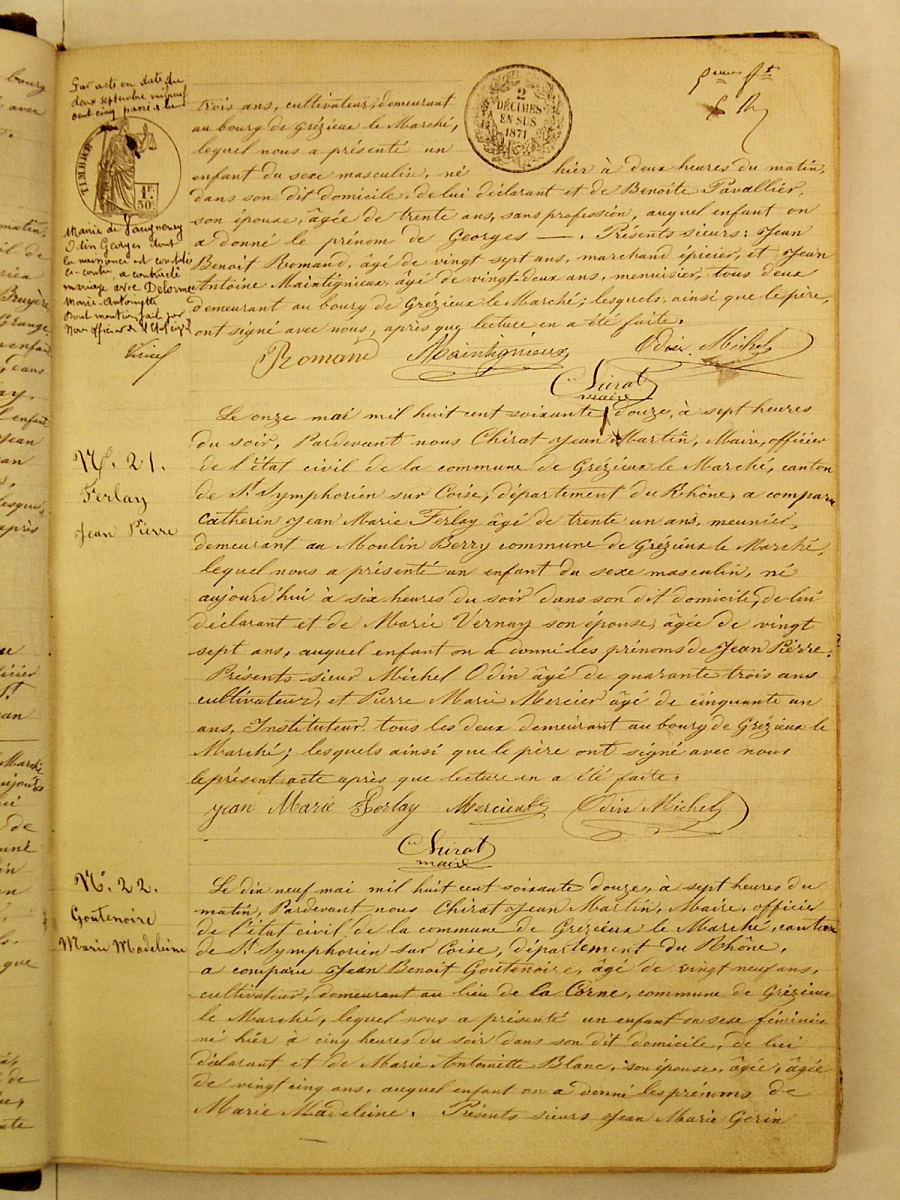 bourg
avec
Sur acte en date du
deux septembre mil neuf
cent cinq passé à la
TIMBRE
1F
50c
2
DÉCIMES
EN SUS
1871
trois ans, cultivateur, demeurant
au bourg de Grézieux le Marché,
lequel nous a présenté un
enfant du sexe masculin, né hier à deux heures du matin,
dans son dit domicile, de lui déclarant et de Benoite
son épouse, âgée de trente ans, sans profession, auquel enfant on
a donné le prénom de Georges —. Présents sieurs: Jean
Benoit Romand, âgé de vingt sept ans, marchand épicier, et Jean
Antoine Maintigneux, âgé de vingt-deux ans, menuisier, tous deux
demeurant au bourg de Grézieux le Marché; lesquels, ainsi que le père,
ont signé avec nous, après que lecture en a été faite.
Mairie de
Odin Georges dont
la naissance est constatée
ci-contre, a contracté
mariage avec Delorme
Marie-Antoinette
Dont mention faite par
Nous officier de l'Etat civil
Romand Maintigneux Odin Michel
Chirat
maire
Nº. 21.
Ferlay
Jean Pierre
Le onze mai mil huit cent soixante douze, à sept heures
du soir, Pardevant nous Chirat Jean Martin, Maire, officier
de l'état civil de la commune de Grézieux le Marché, canton
de St. Symphorien sur Coise, département du Rhône, a comparu
Catherin Jean Marie Ferlay âgé de trente un ans, meunier,
demeurant au Moulin Berry commune de Grézieux le Marché,
lequel nous a présenté un enfant du sexe masculin, né
aujourd'hui à six heures du soir dans son dit domicile, de lui
déclarant et de Marie Vernay son épouse, âgée de vingt
sept ans, auquel enfant on a donné les prénoms de Jean Pierre.
Présents sieur Michel Odin âgé de quarante trois ans
cultivateur, et Pierre Marie Mercier âgé de cinquante un
ans, Instituteur tous les deux demeurant au bourg de Grézieux le
Marché; lesquels ainsi que le père ont signé avec nous
le présent acte après que lecture en a été faite.
Jean Marie Ferlay Mercier Odin Michel
Chirat
maire
Nº. 22.
Goutenoire
Marie Madeleine
Le dix neuf mai mil huit cent soixante douze, à sept heures du
matin, Pardevant nous Chirat Jean Martin, Maire, officier
de l'état civil de la commune de Grézieux le Marché, canton
de St. Symphorien sur Coise, département du Rhône,
a comparu Jean Benoit Goutenoire, âgé de vingt neuf ans,
cultivateur, demeurant au lieu de la Corne, commune de Grézieux
le Marché, lequel nous a présenté un enfant du sexe féminin
né hier à cinq heures du soir dans son dit domicile, de lui
déclarant et de Marie Antoinette Blanc, son épouse, âgée, âgée
de vingt cinq ans, auquel enfant on a donné les prénoms de
Marie Madeleine. Présents sieurs Jean Marie Gerin